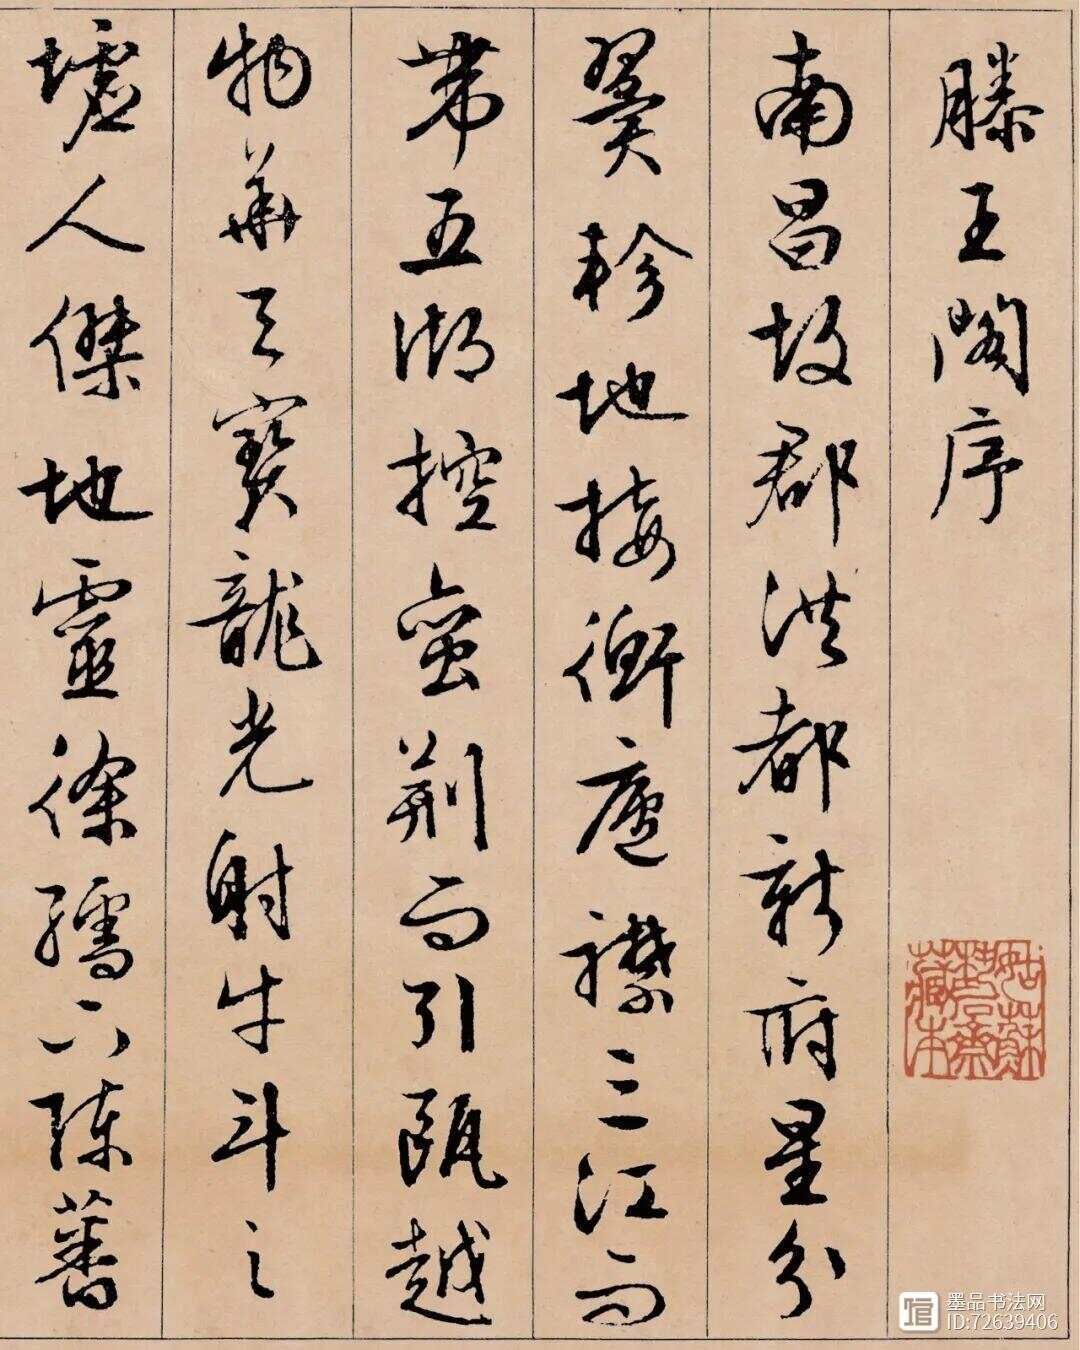 滕王閣序
南昌故郡洪都新府星分
翼軫地接衡廬襟三江而
帶五湖控蠻荊而引甌越
物華天寶龍光射牛斗之
墟人傑地靈徐孺下陳蕃
姑蘇
藏本
墨品书法网
ID:72639406